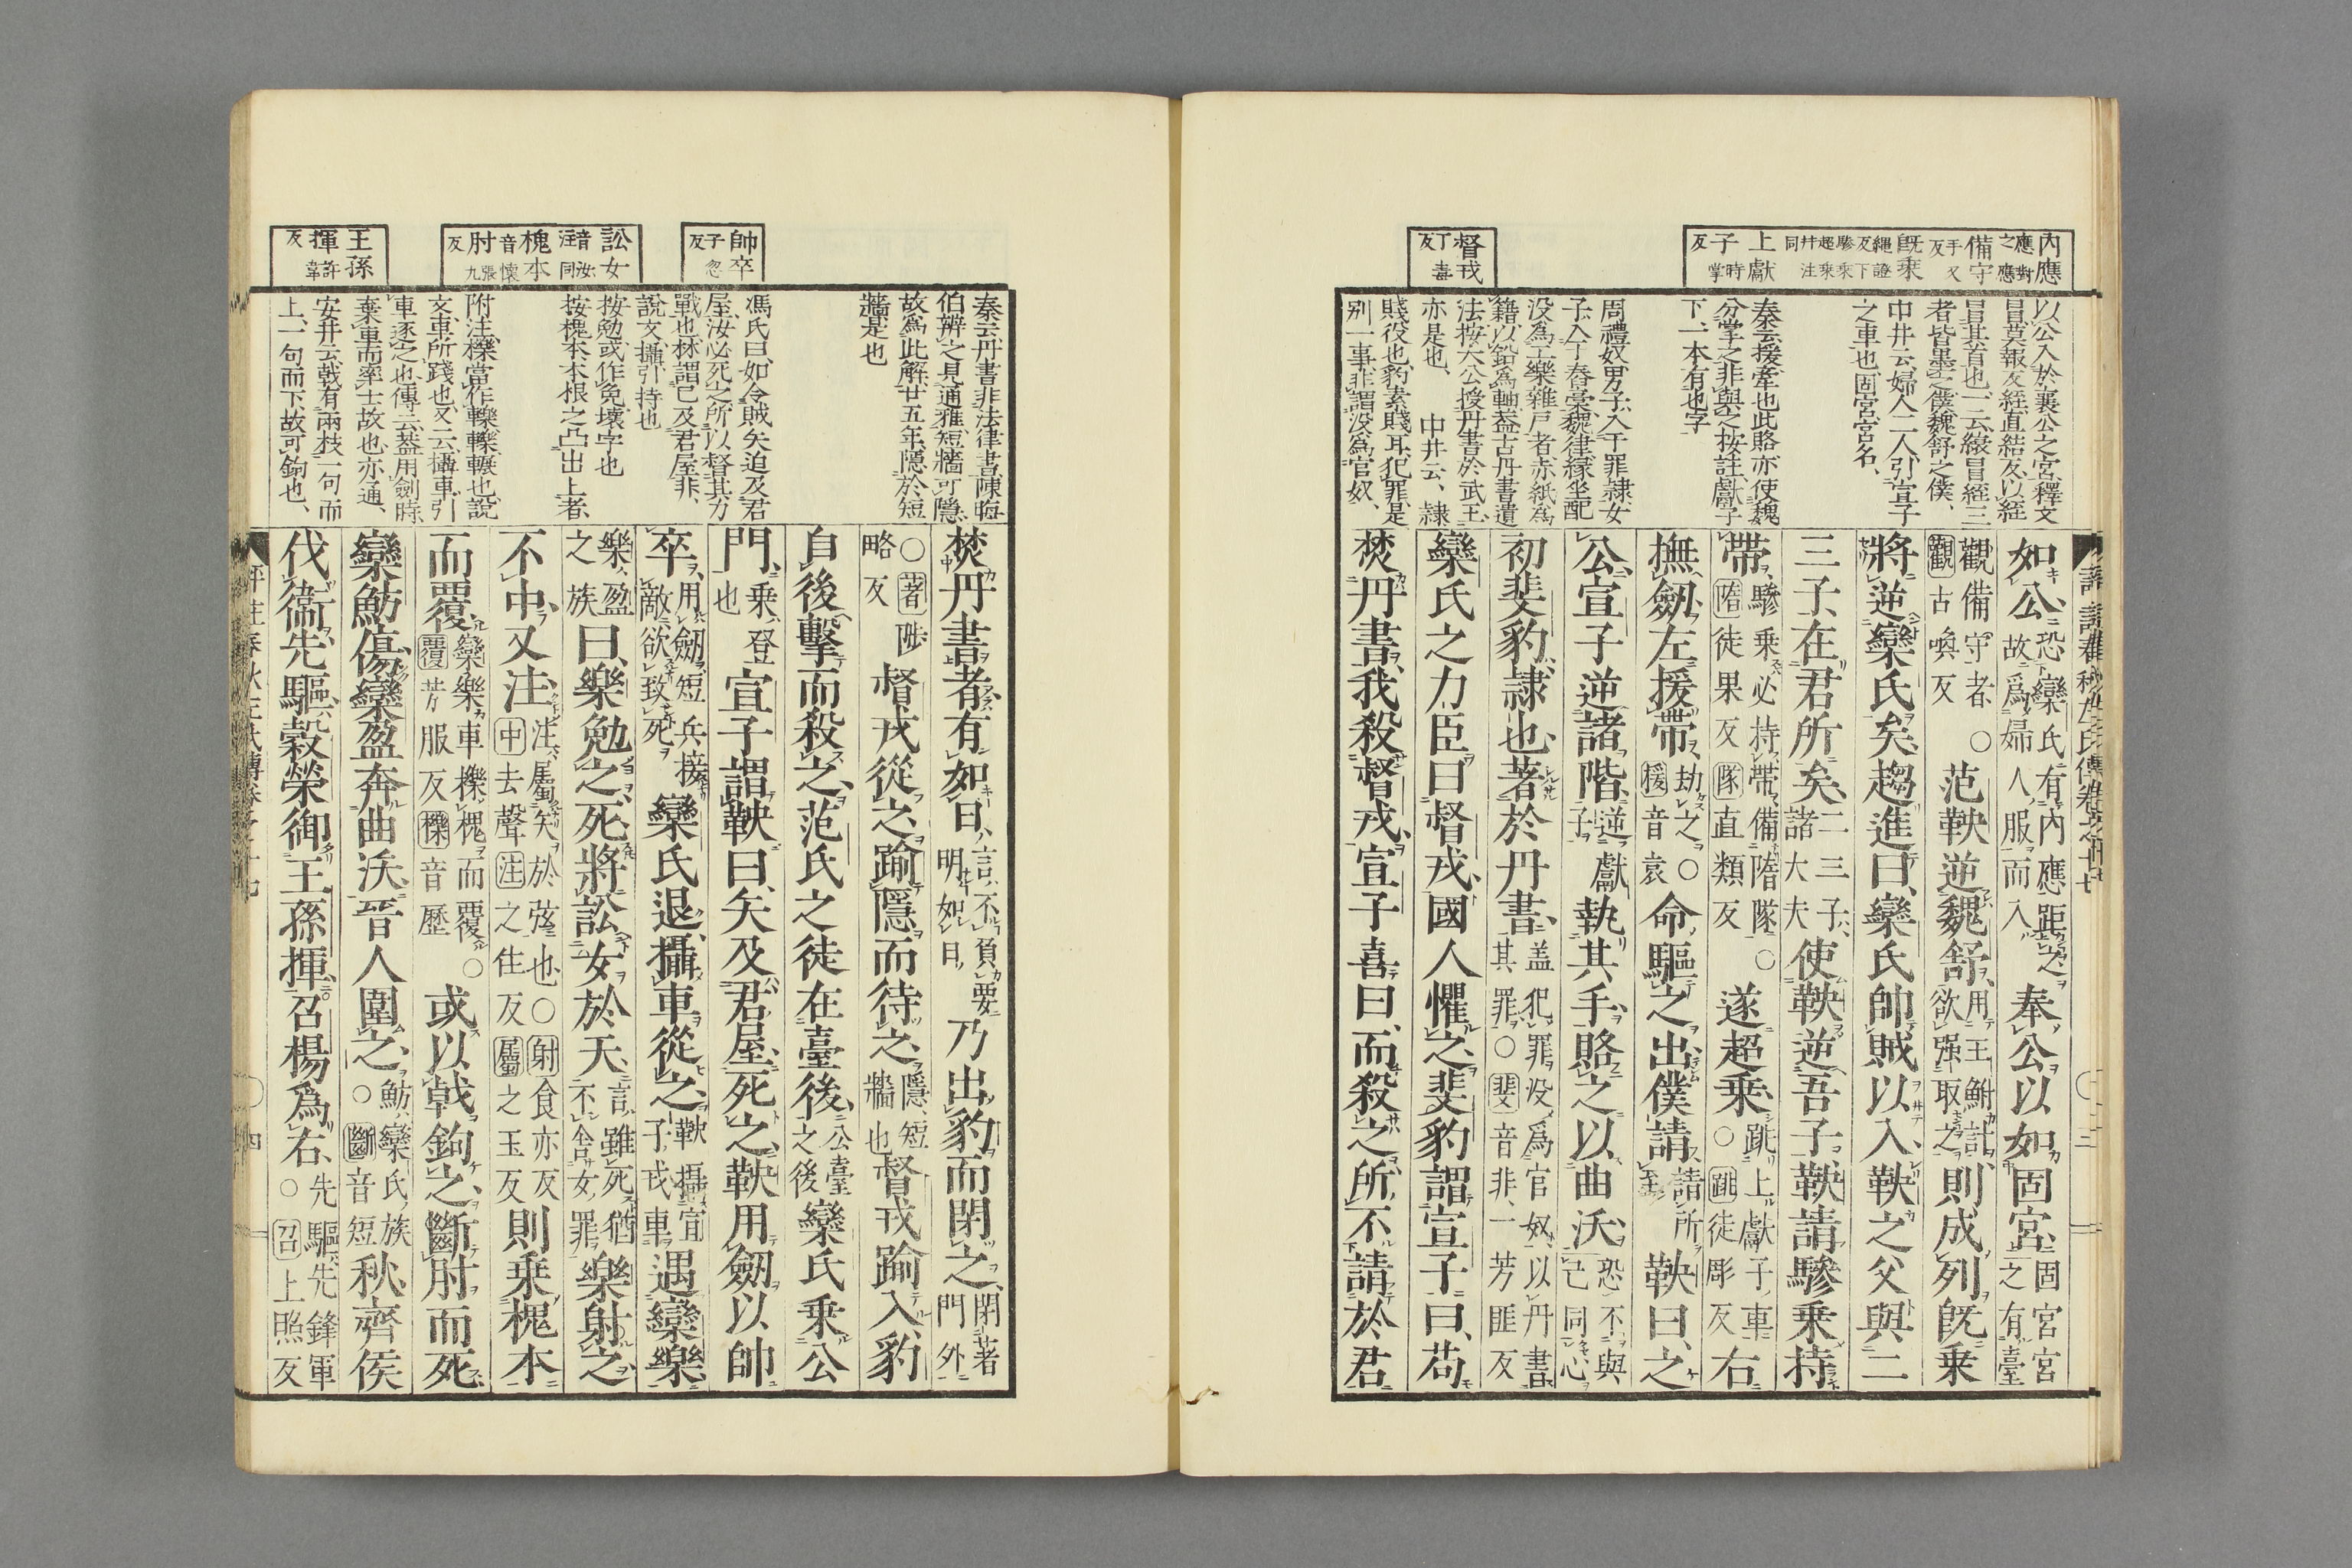 内應 應對之應 備守 手又反 既乗 繩證反下驂乗超乗并注同 上獻子 時掌反
督戎 丁毒反
以公入於襄公之宮釋文
冒莫報反絰直結反以絰
冒其首也一云縗冒絰三
者皆墨之僕魏舒之僕
中井云婦人二人引宣子
之車也固宮宮名
秦云援牽也此賂亦使魏
分掌之非與之按註獻子
下一本有也字
周禮奴男子入于罪隷女
子入于舂稾魏律緣坐配
没爲工樂雜戸者赤紙爲
籍以鉛爲軸葢古丹書遺
法按大公授丹書於武王
亦是也 中井云隷
賤役也豹素賤耳犯罪是
别一事非謂没爲官奴
如公恐欒氏有內應距之故爲婦人服而入奉公以如固宮固宮宮之有臺
觀備守者觀古喚反○范鞅逆魏舒用王鮒計欲强取之則成列既乗
將逆欒氏矣趨進曰欒氏帥賊以入鞅之父與二
三子在君所矣二三子諸大夫使鞅逆吾子鞅請驂乗持
帶驂乗必持帶備隋隊○隋徒果反隊直類反遂超乗跳上獻子車○跳徒彫反右
撫劔左援帶劫之○援音袁命驅之出僕請請所至鞅曰之
公宣子逆諸階逆獻子執其手賂之以曲沃恐不與己同心
初斐豹隷也著於丹書盖犯罪没爲官奴以丹書其罪○斐音非一芳匪反
欒氏之力臣曰督戎國人懼之斐豹謂宣子曰苟
焚丹書我殺督戎宣子喜曰而殺之所不請於君
帥卒 子忽反
訟女 音汝注同 槐本 音懷 肘 張九反
王孫揮 許韋反
秦云丹書非法律書陳晦
伯辨之見通雅短牆可隱
故爲此解廿五年隱於短
牆是也
馮氏曰如令賊矢迫及君
屋汝必死之所以督其力
戰也林謂己及君屋非
説文攝引持也
按勉或作免壊字也
按槐本本根之凸出上者
附注櫟當作轢轢輾也説
文車所踐也又云攝車引
車逐之也傳云葢用劍時
棄車而率士故也亦通
安井云戟有兩枝一句而
上一句而下故可鉤也
焚丹書者有如日言不負要明如日乃出豹而閉之閉著門外
○著陟略反督戎從之踰隱而待之隱短牆也督戎踰入豹
自後擊而殺之范氏之徒在臺後公臺之後欒氏乗公
門乗登也宣子謂鞅曰矢及君屋死之鞅用劔以帥
卒用劔短兵接敵欲致死欒氏退攝車從之鞅攝宣子戎車遇欒樂
樂盈之族曰樂勉之死將訟女於天言雖死猶不舍女罪樂射之
不中又注注屬矢於弦也○射食亦反中去聲注之住反屬之玉反則乗槐本
而覆欒樂車櫟槐而覆○覆芳服反櫟音歷或以戟鉤之斷肘而死
欒魴傷欒盈奔曲沃晉人圍之魴欒氏族○斷音短秋齊侯
伐衞先驅穀榮御王孫揮召楊爲右先驅先鋒軍○召上照反